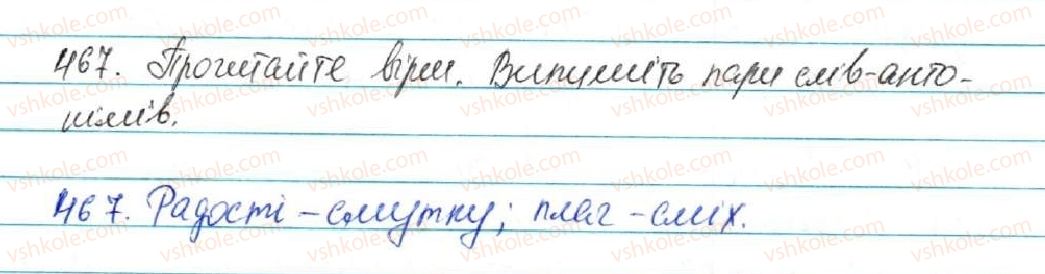 467. Прочитайте вірш. Випишіть пари слів-анто-
німів.
467. Радості – смутку; плач – сміх.